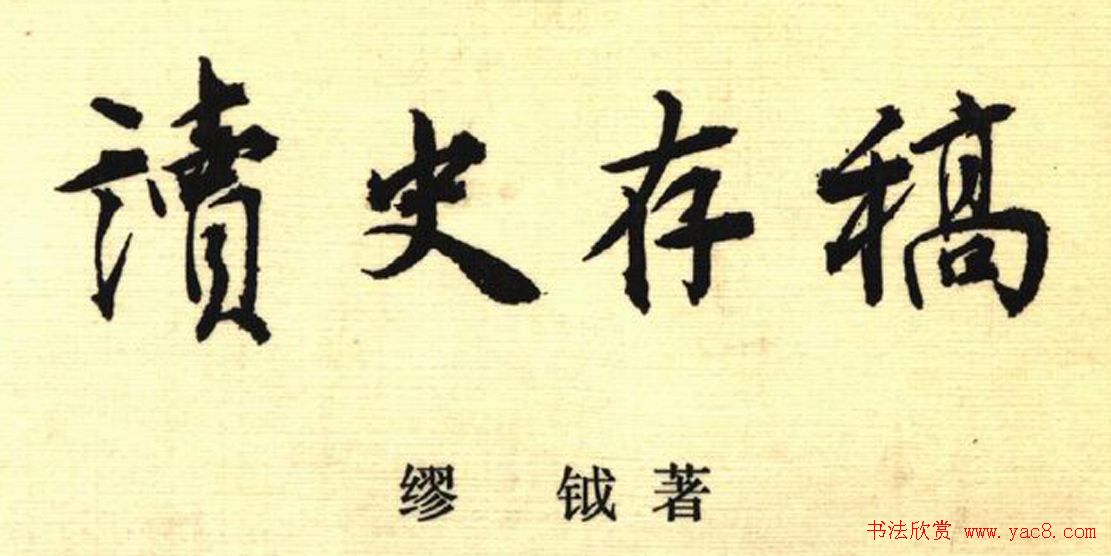 讀史存稿
缪 钺 著
书法欣赏 www.yac8.com